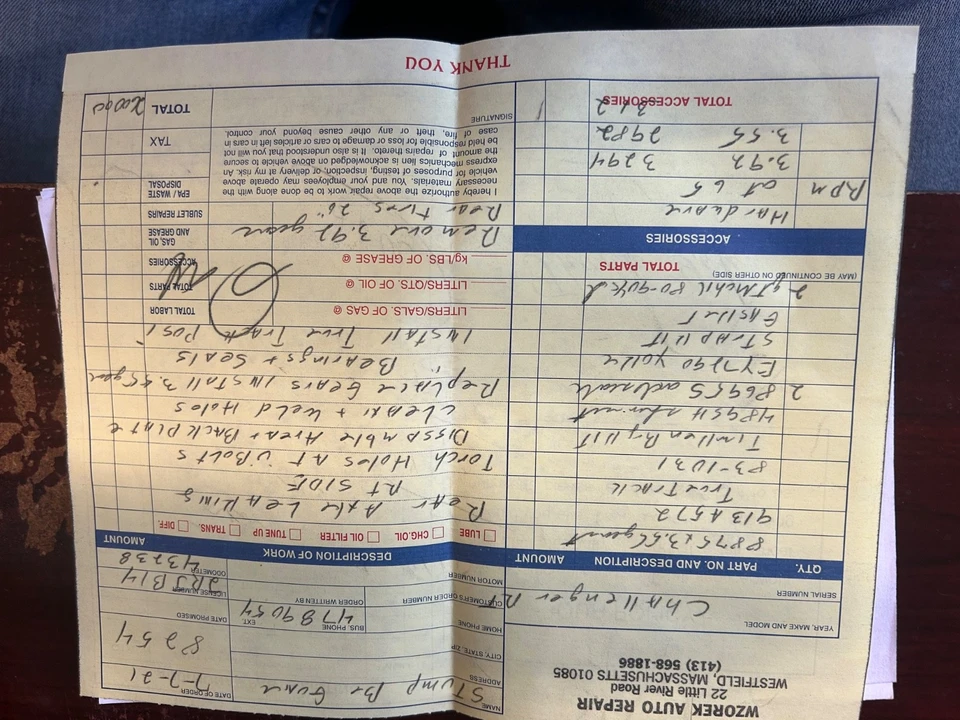 WZOREK AUTO REPAIR
22 Little River Road
WESTFIELD, MASSACHUSETTS 01085
(413) 568-1886
YEAR, MAKE AND MODEL
Challenger RT
SERIAL NUMBER
QTY. PART NO. AND DESCRIPTION AMOUNT
8875 3.55 gears
913A572
TrueTrack
83-1031
Timken Brg KIT
2 8695S axle seals
yoke
STrap KIT
2 qt Mobil 80-90
(MAY BE CONTINUED ON OTHER SIDE) TOTAL PARTS
ACCESSORIES
Hardware
RPM at 65
3.92 3294
3.55 2982
312
TOTAL ACCESSORIES
NAME
STump Be Gone
DATE OF ORDER
7-7-21
ADDRESS
8254
CITY, STATE, ZIP
DATE PROMISED
HOME PHONE
BUS. PHONE EXT.
4789054
LICENSE NUMBER
2RJB14
CUSTOMER'S ORDER NUMBER
ORDER WRITTEN BY
ODOMETER
43238
MOTOR NUMBER
DESCRIPTION OF WORK AMOUNT
LUBE CHG.OIL OIL FILTER TUNE UP TRANS. DIFF.
Rear Axle LEAKING
RT SIDE
TORCH HOLES AT U BOLTS
DISSAMBLE AREAR BACK PLATE
CLEAN + WELD HOLES
Replace Gears INSTALL 3.55 gear
Bearings + Seals
INSTALL True Track Posi
LITERS/GALS. OF GAS @
TOTAL LABOR
LITERS/QTS. OF OIL @
TOTAL PARTS
kg/LBS. OF GREASE @
ACCESSORIES
Remove 3.92 gears
GAS, OIL AND GREASE
Rear tires 26"
SUBLET REPAIRS
I hereby authorize the above repair work to be done along with the
necessary materials. You and your employees may operate above
vehicle for purposes of testing, inspection, or delivery at my risk. An
express mechanics lien is acknowledged on above vehicle to secure
the amount of repairs thereto. It is also understood that you will not
be held responsible for loss or damage to cars or articles left in cars in
case of fire, theft or any other cause beyond your control.
EPA / WASTE DISPOSAL
TAX
SIGNATURE
TOTAL
THANK YOU